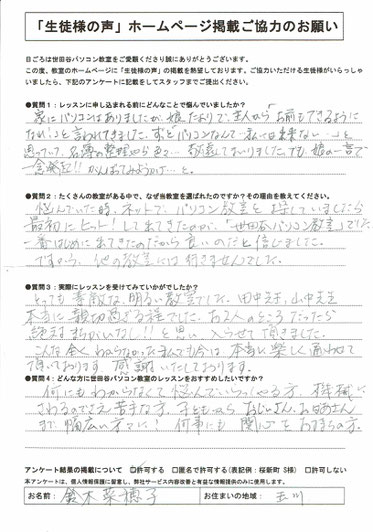 「生徒様の声」ホームページ掲載ご協力のお願い
日ごろは世田谷パソコン教室をご愛顧くださり誠にありがとうございます。
この度、教室のホームページに「生徒様の声」の掲載を熱望しております。ご協力いただける生徒様がいらっしゃい
ましたら、下記のアンケートに記載をしてスタッフまでご提出ください。
●質問1：レッスンに申し込まれる前にどんなことで悩んでいましたか？
家にパソコンはありましたが、娘たちや、主人から「お前もできるように
なれ!」と言われてきました。ずっとパソコンなんて私には出来ない…と
思っていて、名簿の整理やら色々… 敬遠しておりました。でも、娘の一言で
一念発起!! がんばってみようか…と。
●質問2：たくさんの教室がある中で、なぜ当教室を選ばれたのですか？その理由を教えてください。
悩んでいた時、ネットで、パソコン教室を探していましたら
最初にヒット!して出てきたのが、「世田谷パソコン教室」でした
一番はじめに出てきたのだから良いのだと信じました。
ですから、他の教室には行きませんでした。
●質問3：実際にレッスンを受けてみていかがでしたか？
とっても素敵な、明るい教室でした。田中先生、山中先生
本当に親切過ぎる程でした。お2人のところだったら
絶対まちがいなし!!と思い 入らせて頂きました。
こんな全くわからなかった私でも今は本当に楽しく通わせて
頂いております。感謝いたしております。
●質問4：どんな方に世田谷パソコン教室のレッスンをおすすめしたいですか？
何にもわからなくて悩んでいらっしゃる方、機械に
さわるのでさえ苦手な方、子どもからおじいさん、お母さん
まで幅広い方々に! 何事にも関心をお持ちの方。
アンケート結果の掲載について ☑許可する □匿名で許可する（表記例：桜新町 S様） □許可しない
本アンケートは、個人情報保護に留意し、弊社サービス内容改善と有益な情報提供のみに使用します。
お名前： 鈴木 菜博子 お住まいの地域： 玉川